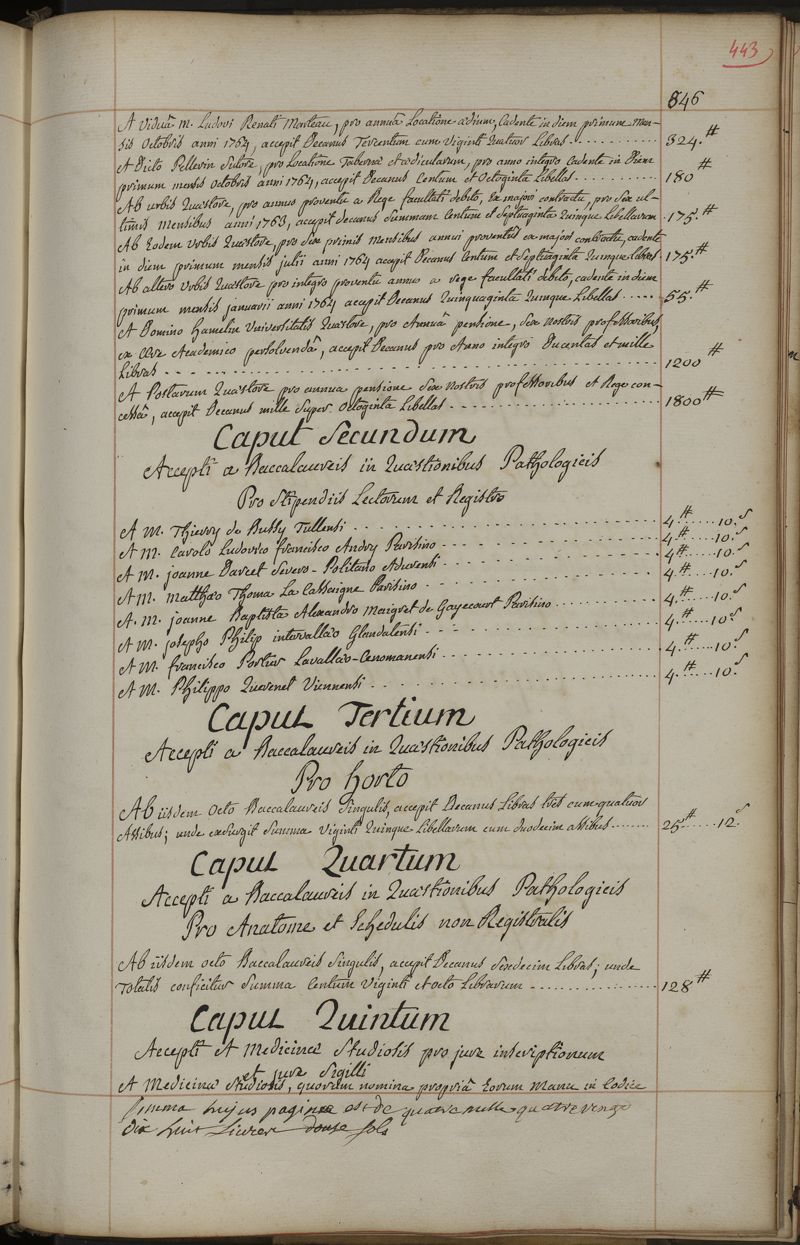 443
846
A Viduâ M. Ludovi Renati Marteau, pro annuâ Locatione ædium, Cadente in diem primum Men-
sis Octobris anni 1764, accepit Decanus Tercentum cum Viginti Quatuor Libras 324.#
A Dicto Pellevin Sutore, pro Locatione Tabernæ et ædicularum, pro anno integro Cadente in Diem
primum mensis Octobris anni 1764, accepit Decanus Centum et Octoginta Libellas 180#
Ab urbis Quæstore, pro annuo proventu a Rege facultati debito, Ex majori contractu, pro Sex ul-
timis Mensibus anni 1763, accepit decanus Summam Centum et Septuaginta Quinque Libellarum 175.#
Ab Eodem Urbis Quæstore, pro Sex primis Mensibus annui proventûs ex majori contractu, cadente
in diem primum mensis julii anni 1764 accepit Decanus Centum et Septuaginta Quinque libras 175.#
Ab altero Urbis Quæstore pro integro proventu annuo a rege facultati debito, cadente in diem
primum mensis januarii anni 1764 accepit Decanus Quinquaginta Quinque Libellas 55.#
A Domino Hamelin Universitatis Quæstore, pro Annuâ pensione, Sex Nostris professoribus,
ex ære Academico persolvendâ, accepit Decanus pro Anno integro Ducentas et mille
Libras 1200#
A Postarum Quæstore pro annua pensione Sex Nostris professoribus a Rege con-
cessâ, accepit Decanus mille Super Octoginta Libellas 1800#
Caput Secundum
Accepti a Baccalaureis in Quæstionibus Pathologicis
Pro Stipendiis Lectorum et Registro
A M. Thierry de Bussy Tullensi 4.# 10.s
A M. Carolo Ludovico francisco Andry Parisino 4.# 10.s
A M. joanne Darcet Severo-Politano Adurensi 4.# 10.s
A M. Matthæo Thoma La Cassaigne Parisino 4.# 10.s
A. M. joanne Baptista Alexandro Maigret de Gayecourt Parisino 4.# 10.s
A M. josepho Philip intervallæo Glandatensi 4.# 10.s
A M. francisco Portier Lavallæo-Cenomanensi 4.# 10.s
A M. Philippo Quevenet Viennensi 4.# 10.s
Caput Tertium
Accepti a Baccalaureis in Quæstionibus Pathologicis
Pro horto
Ab iisdem Octo Baccalaureis Singulis, accepit Decanus Libras tres cum quatuor
Assibus; unde exsurgit Summa Viginti Quinque Libellarum cum duodecim assibus 25# 12.s
Caput Quartum
Accepti a Baccalaureis in Quæstionibus Pathologicis
Pro Anatome et Schedulis non Registralis
Ab iisdem octo Baccalaureis Singulis, accepit Decanus Sexdecim Libras; unde
Totalis conficitur Summa Centum Viginti et octo Librarum 128#
Caput Quintum
Accepti A Medicinæ Studiosis pro jure inscriptionum
et jure Sigilli
A Medicinæ Studiosis, quorum nomina propriâ Eorum Manu in Codice
Summa hujus paginæ est de quatre mille quatre vengt
dix huit Livres douse sols